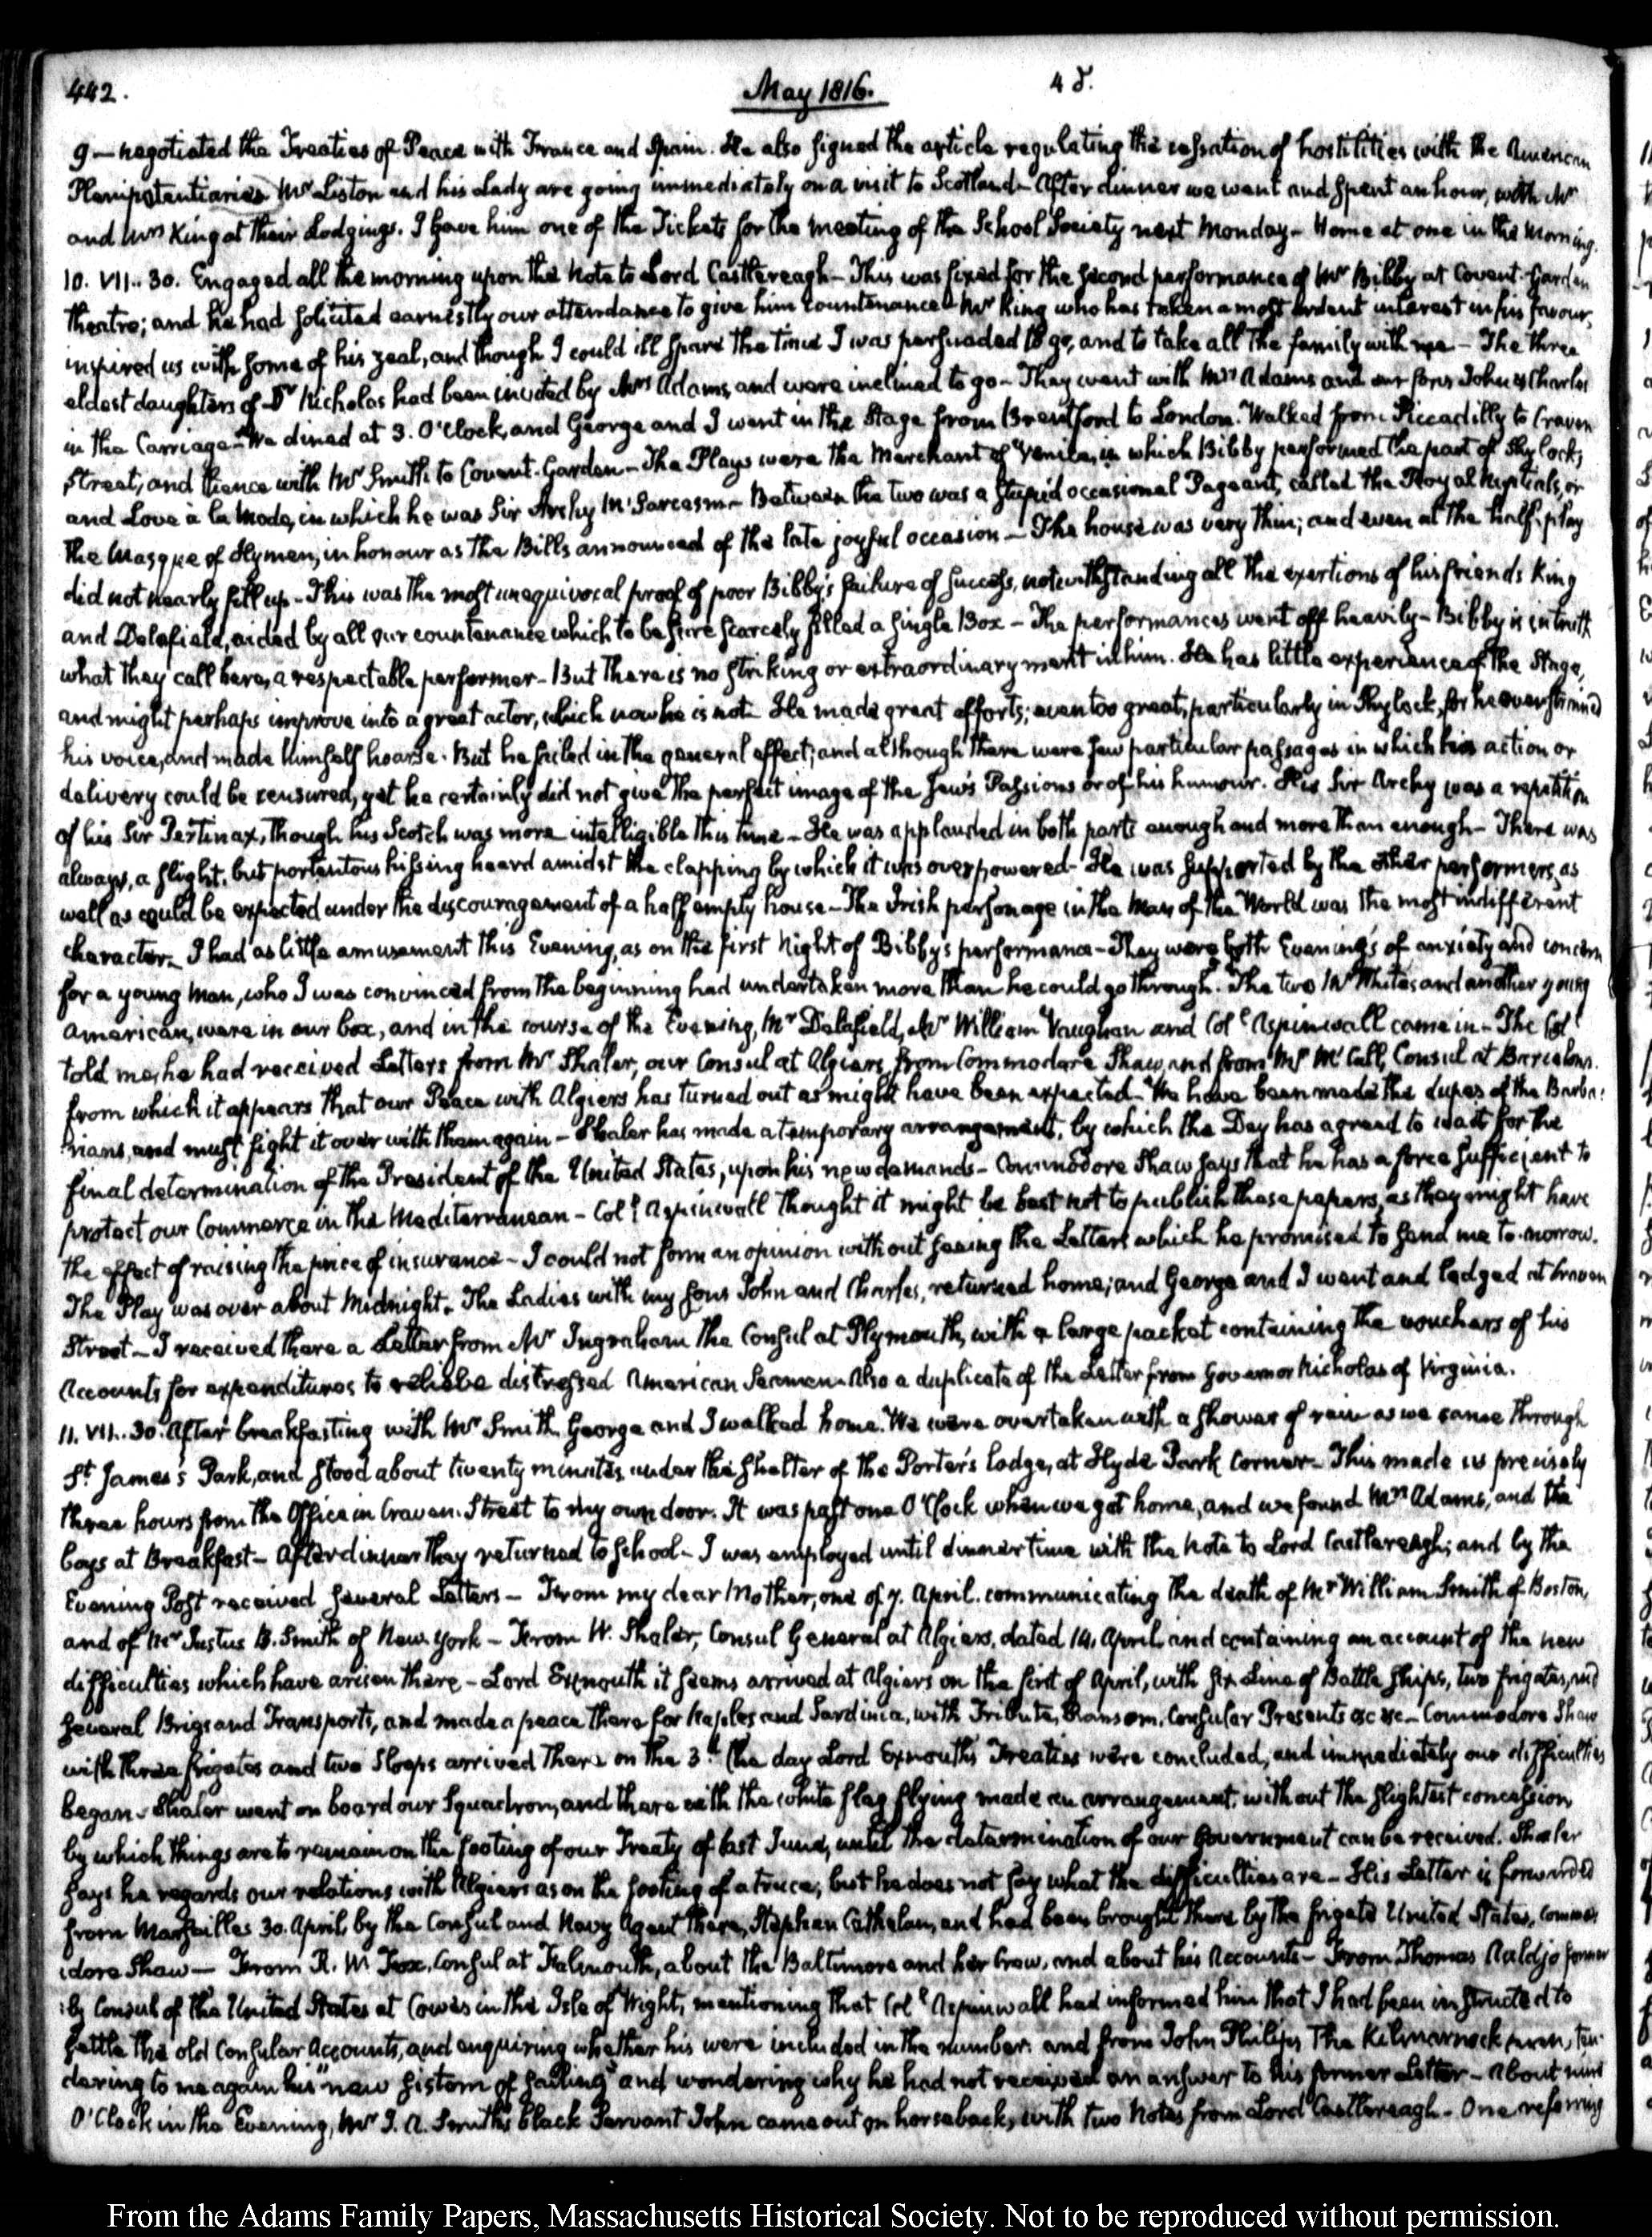 442.
May 1816.
48.
9 — negotiated the Treaties of Peace with France and Spain. He also signed the article regulating the cessation of hostilities with the American
Plenipotentiaries Mr Liston and his Lady are going immediately on a visit to Scotland — After dinner we went and spent an hour, with Mr
and Mrs King at their Lodgings. I gave him one of the Tickets for the meeting of the School Society next Monday — Home at one in the morning.
10. VII.. 30. Engaged all the morning upon the Note to Lord Castlereagh — This was fixed for the second performance of Mr Bibby at Covent-Garden
Theatre; and he had solicited earnestly our attendance to give him countenance — Mr King who has taken a most ardent interest in his favour,
inspired us with some of his zeal, and though I could ill spare the time I was persuaded to go, and to take all the family with me — The three
eldest daughters of Dr Nicholas had been invited by Mrs Adams, and were inclined to go — They went with Mrs Adams and our sons John & Charles
in the Carriage — We dined at 3. O'Clock, and George and I went in the Stage from Brentford to London. Walked from Piccadilly to Craven
Street, and thence with Mr Smith to Covent-Garden — The Plays were the Merchant of Venice, in which Bibby performed the part of Shylock;
and Love à la Mode, in which he was Sir Archy McSarcasm — Between the two was a stupid occasional Pageant, called the Royal Nuptials, or
the Masque of Hymen, in honour as the Bills announced of the late joyful occasion — The house was very thin; and even at the half-play
did not nearly fill up — This was the most unequivocal proof of poor Bibby's failure of success, notwithstanding all the exertions of his friends King
and Delafield, aided by all our countenance which to be sure scarcely filled a single Box — The performances went off heavily — Bibby is in truth
what they call here, a respectable performer — But there is no striking or extraordinary merit in him. He has little experience of the Stage,
and might perhaps improve into a great actor, which now he is not. He made great efforts; even too great, particularly in Shylock, for he overstrained
his voice, and made himself hoarse. But he failed in the general effect; and although there were few particular passages in which his action or
delivery could be censured, yet he certainly did not give the perfect image of the Jew's Passions or of his humour. His Sir Archy was a repetition
of his Sir Pertinax, though his Scotch was more intelligible this time — He was applauded in both parts enough and more than enough — There was
always, a slight, but portentous hissing heard amidst the clapping by which it was overpowered — He was supported by the other performers, as
well as could be expected under the discouragement of a half empty house — The Irish personage in the Man of the World was the most indifferent
character. I had as little amusement this Evening, as on the first Night of Bibby's performance — They were both Evenings of anxiety and concern
for a young man, who I was convinced from the beginning had undertaken more than he could go through. The two Mr Whites and another young
American, were in our box, and in the course of the Evening, Mr Delafield, Mr William Vaughan and Coll Aspinwall came in — The Coll
told me, he had received Letters from Mr Shaler, our Consul at Algiers, from Commodore Shaw, and from Mr McCall, Consul at Barcelona.
from which it appears that our Peace with Algiers has turned out as might have been expected. We have been made the dupes of the Barba:
:rians, and must fight it over with them again — Shaler has made a temporary arrangement, by which the Dey has agreed to wait for the
final determination of the President of the United States, upon his new demands — Commodore Shaw says that he has a force sufficient to
protect our Commerce in the Mediterranean — Coll Aspinwall thought it might be best not to publish these papers, as they might have
the effect of raising the price of insurance — I could not form an opinion without seeing the Letters which he promised to send me to-morrow.
The Play was over about Midnight. The Ladies with my sons John and Charles, returned home; and George and I went and lodged at Craven
Street — I received there a Letter from Mr Ingraham the Consul at Plymouth, with a large packet containing the vouchers of his
Accounts for expenditures to relieve distressed American Seamen. Also a duplicate of the Letter from Governor Nicholas of Virginia.
11. VII.. 30. After breakfasting with Mr Smith, George and I walked home. We were overtaken with a shower of rain as we came through
St James's Park, and stood about twenty minutes under the shelter of the Porter's lodge, at Hyde Park Corner — This made us precisely
three hours from the Office in Craven-Street to my own door. It was past one O'Clock when we got home, and we found Mrs Adams, and the
boys at Breakfast — After dinner they returned to School — I was employed until dinner time with the Note to Lord Castlereagh; and by the
Evening Post received several Letters — From my dear Mother, one of 7. April. communicating the death of Mr William Smith of Boston,
and of Mr Justus B. Smith of New-York — From W. Shaler, Consul General at Algiers, dated 14. April and containing an account of the new
difficulties which have arisen there — Lord Exmouth it seems arrived at Algiers on the first of April, with six Line of Battle ships, two frigates, and
several Brigs and Transports, and made a peace there for Naples and Sardinia, with Tribute, Ransom, Consular Presents &c &c — Commodore Shaw
with three frigates and two Sloops arrived there on the 3d the day Lord Exmouth's Treaties were concluded, and immediately our difficulties
began — Shaler went on board our Squadron, and there with the white flag flying made an arrangement, without the slightest concession,
by which things are to remain on the footing of our Treaty of last June, until the determination of our Government can be received. Shaler
says he regards our relations with Algiers as on the footing of a truce; but he does not say what the difficulties are — His Letter is forwarded
from Marseilles 30. April by the Consul and Navy Agent there, Stephen Cathalan, and had been brought there by the frigate United States, Commo:
:dore Shaw — From R. W. Fox, Consul at Falmouth, about the Baltimore and her Crew, and about his Accounts — From Thomas Auldjo former
:ly Consul of the United States at Cowes in the Isle of Wight, mentioning that Coll Aspinwall had informed him that I had been instructed to
settle the old Consular Accounts, and enquiring whether his were included in the number. and from John Philips, The Kilmarnock man, ten:
dering to me again his "new sistom of sailing" and wondering why he had not received an answer to his former Letter — About nine
O'Clock in the Evening, Mr J. A. Smith's black Servant John came out on horseback, with two Notes from Lord Castlereagh — One referring
From the Adams Family Papers, Massachusetts Historical Society. Not to be reproduced without permission.